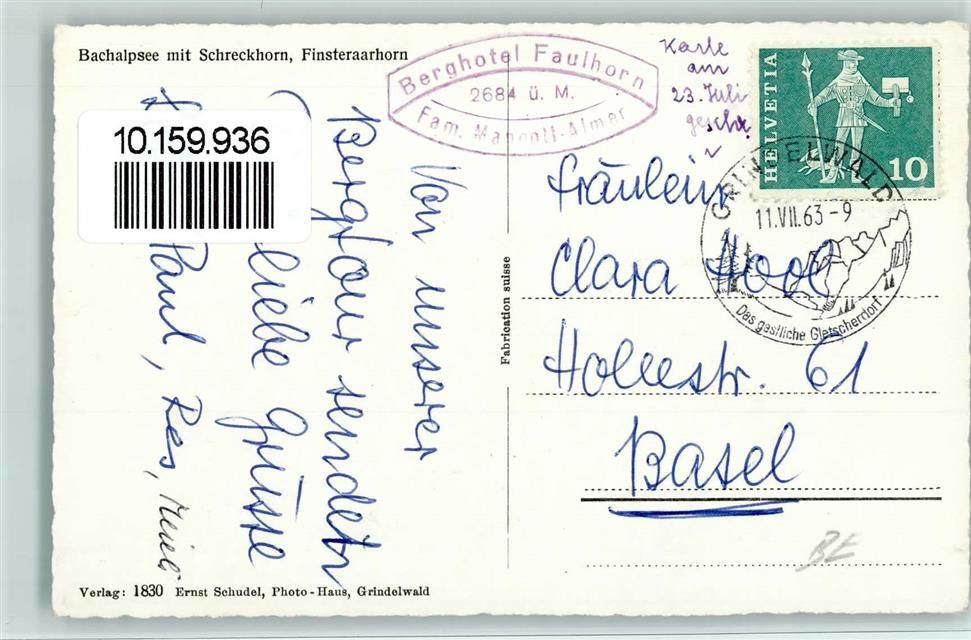 Bachalpsee mit Schreckhorn, Finsteraarhorn
Berghotel Faulhorn
2684 ü. M.
Fam.
10.159.936
Von unserer
Bergtour sendet
liebe Grüsse
Paul, Res,
Karte
am
23. Juli
HELVETIA
10
GRINDELWALD
11.VII.63-9
Das gastliche Gletscherdorf
Fräulein
Clara
61
Basel
Fabrication suisse
BE
Verlag: 1830 Ernst Schudel, Photo-Haus, Grindelwald